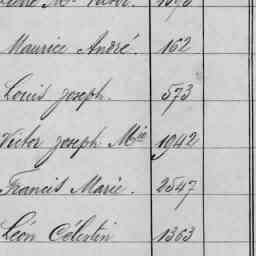 Maurice André. 162
Louis Joseph. 573
Victor Joseph Mie 1942
Francis Marie. 2547
Léon Célestin 1363